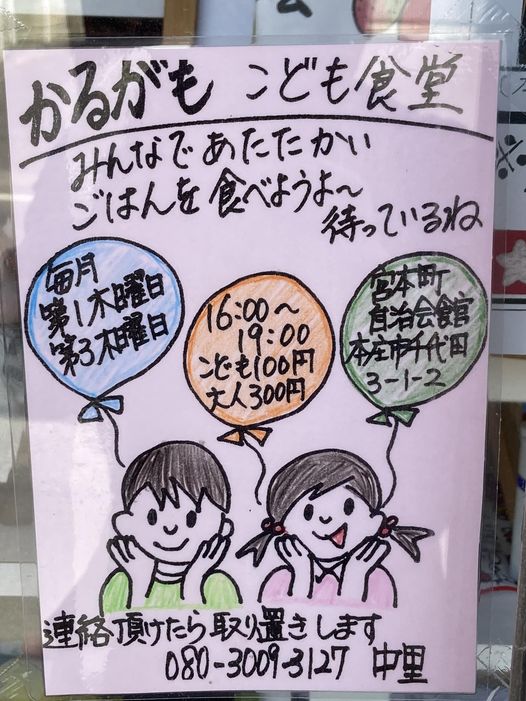 かるがも こども食堂
みんなであたたかい
ごはんを食べようよ〜
待っているね
毎月
第1木曜日
第3木曜日
16:00〜
19:00
こども100円
大人300円
宮本町
自治会館
本庄市千代田
3-1-2
連絡頂けたら取り置きします
080-3009-3127 中里
※